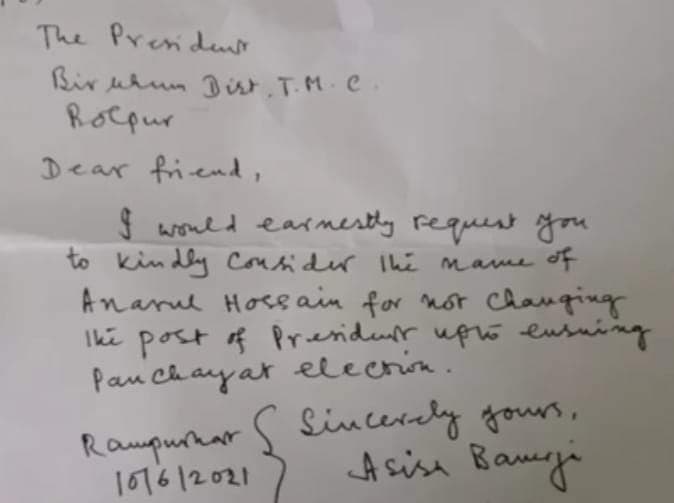 The President
Birbhum Dist. T.M.C.
Bolpur
Dear friend,
I would earnestly request you
to kindly consider the name of
Anarul Hossain for not changing
the post of President upto ensuing
Panchayat election.
Rampurhat
10/6/2021
Sincerely yours,
Asish Banerji